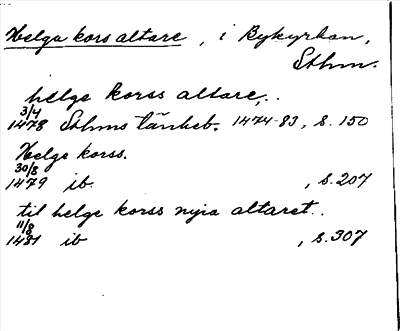 Helga kors altare, i Bykyrkan,
Sthm.
helge korss altare,..
3/4
1478 Sthms tänkeb. 1474-83, s. 150
Helge korss.
30/8
1479 ib. , s. 207
til helge korss nyia altaret..
11/8
1481 ib , s. 307